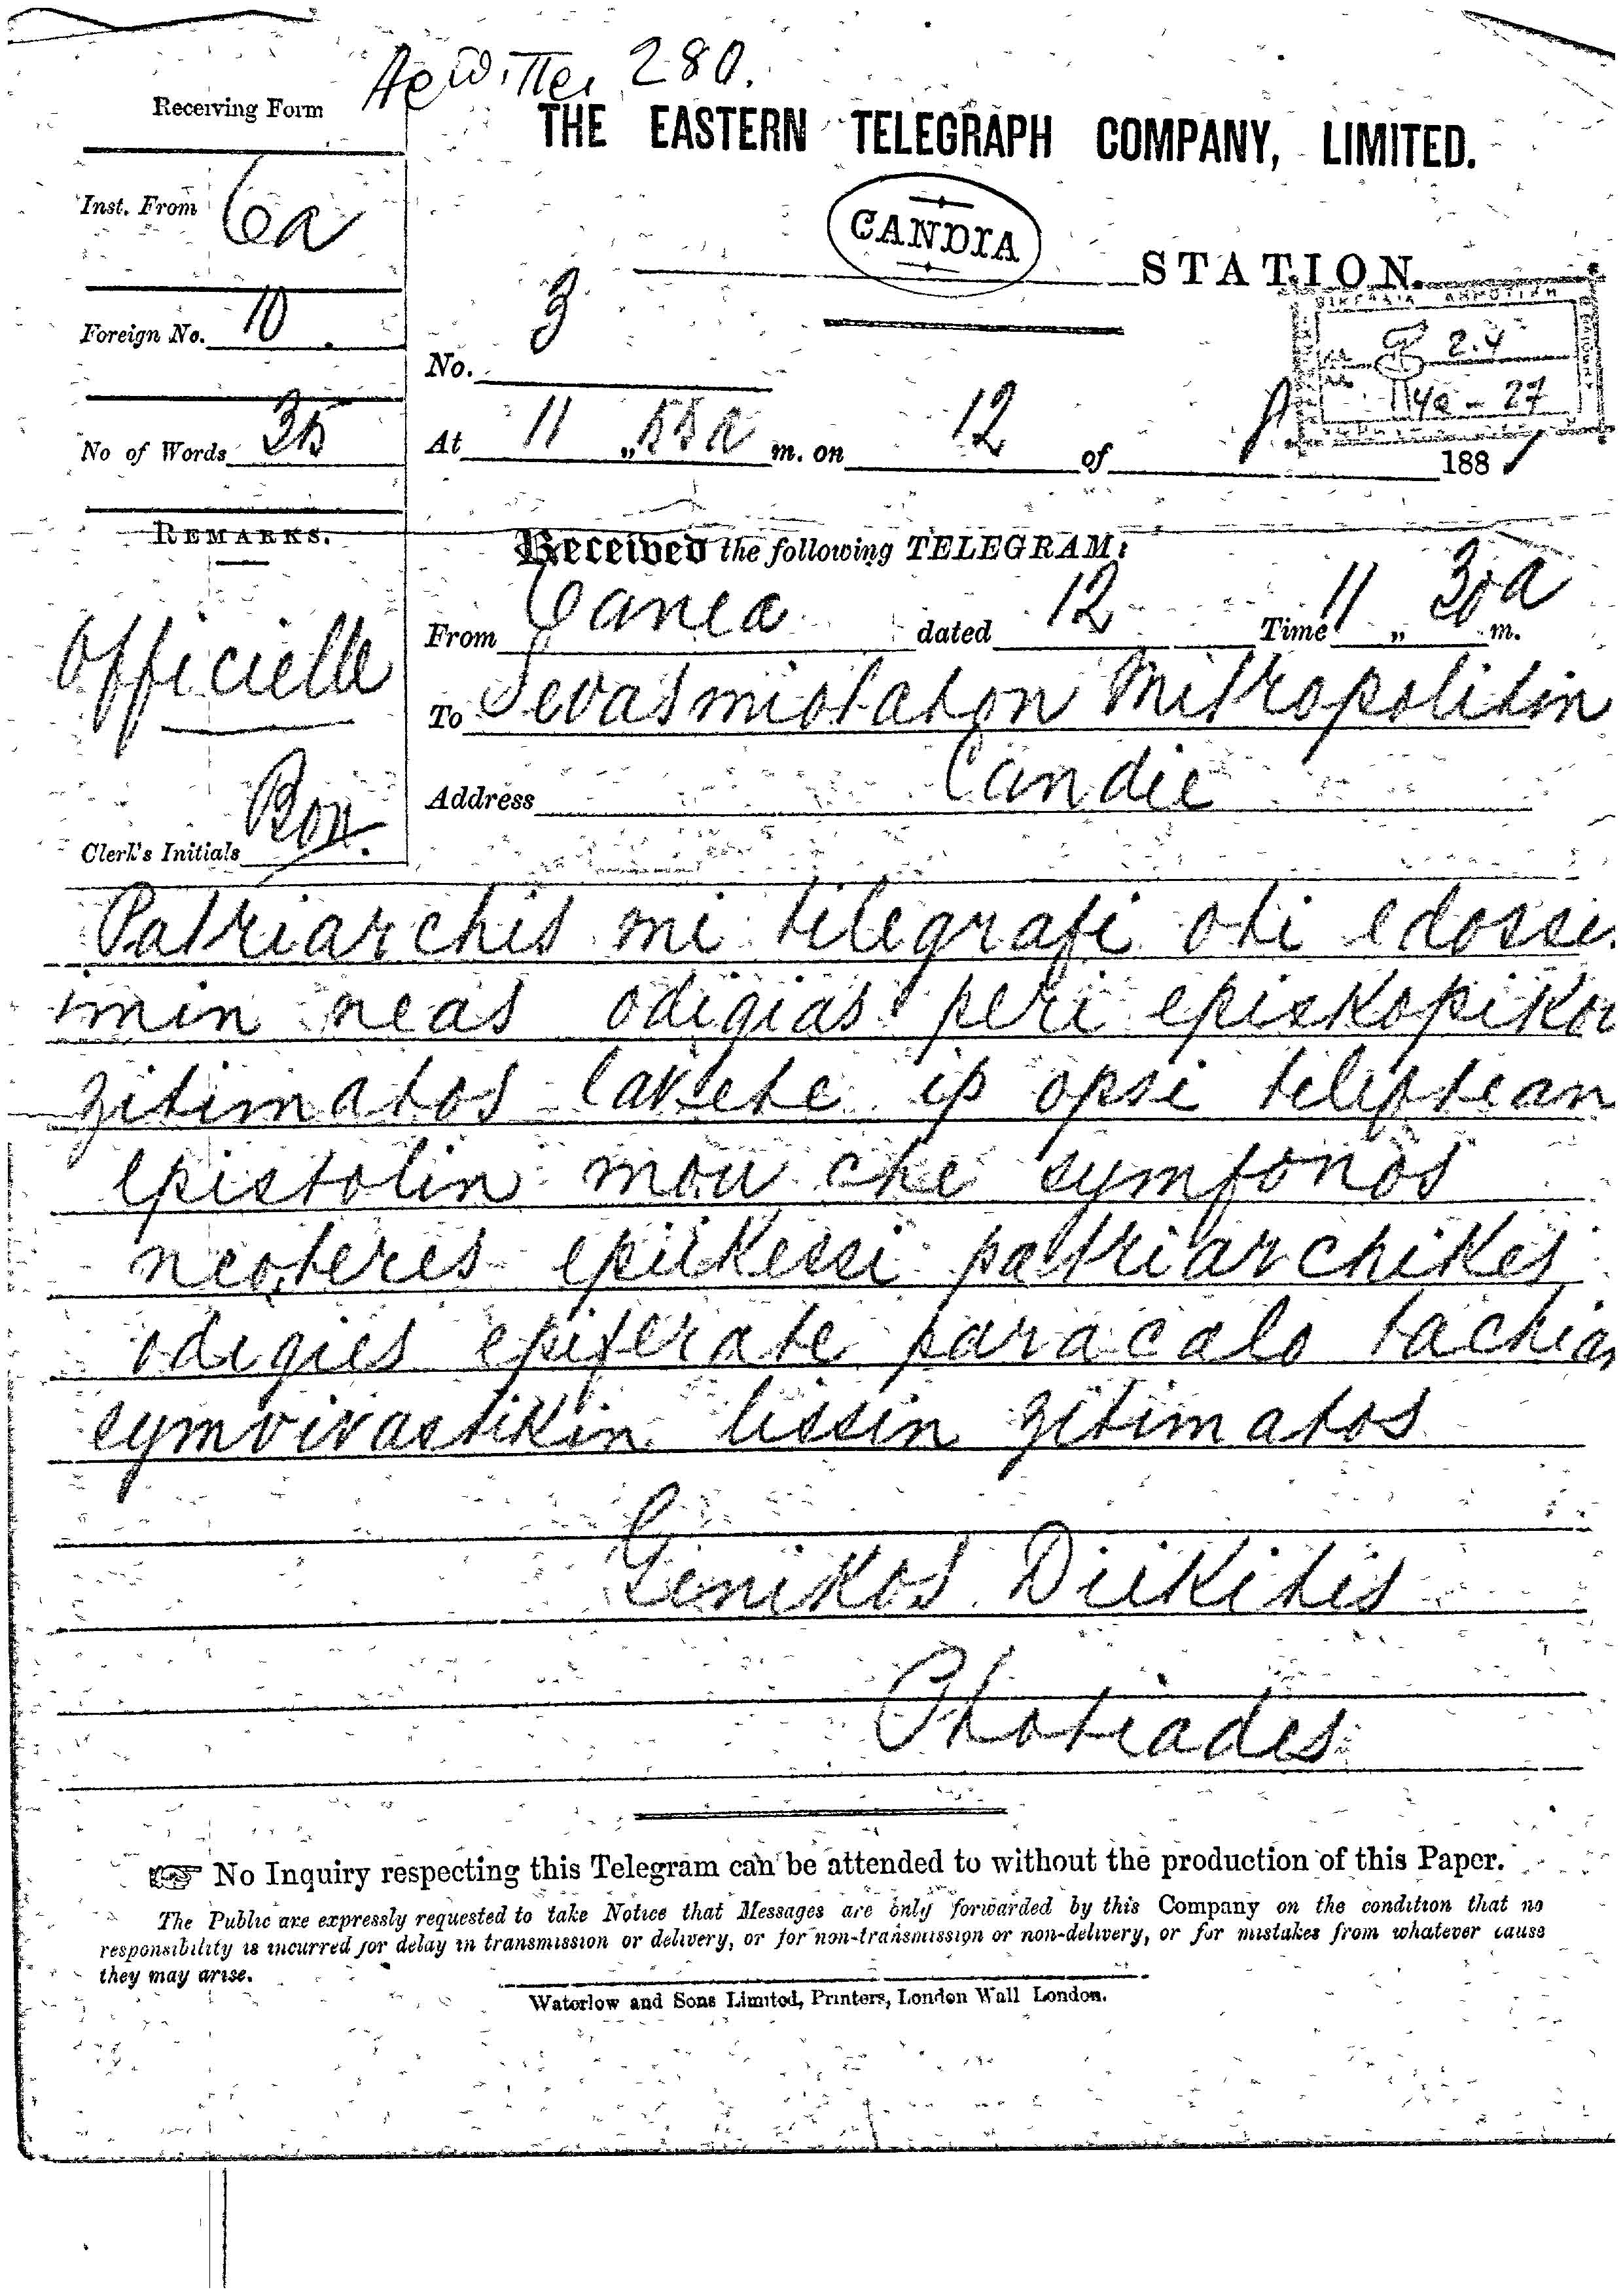 280.
Receiving Form
THE EASTERN TELEGRAPH COMPANY, LIMITED.
Inst. From Ca
CANDIA
STATION.
Foreign No. 10
No. 3
2.4
40 - 27
No of Words 35
At 11 „ 55 a m. on 12 of 188
REMARKS.
Received the following TELEGRAM:
Officielle
From Canea dated 12 Time 11 „ 30 a m.
To Sevasmiotaton Mitropolitin
Address Candie
Clerk's Initials Bon.
Patriarchis mi tilegrafi oti edosse
imin neas odigias peri episkopikou
zitimatos lavete ip opsi teleftean
epistolin mou che symfonos
neoteres epiikessi patriarchikes
odigies epiferate paracalo tachian
symvivastikin lissin zitimatos
Genikos Diikitis
Photiades
No Inquiry respecting this Telegram can be attended to without the production of this Paper.
The Public are expressly requested to take Notice that Messages are only forwarded by this Company on the condition that no
responsibility is incurred for delay in transmission or delivery, or for non-transmission or non-delivery, or for mistakes from whatever cause
they may arise.
Waterlow and Sons Limited, Printers, London Wall London.